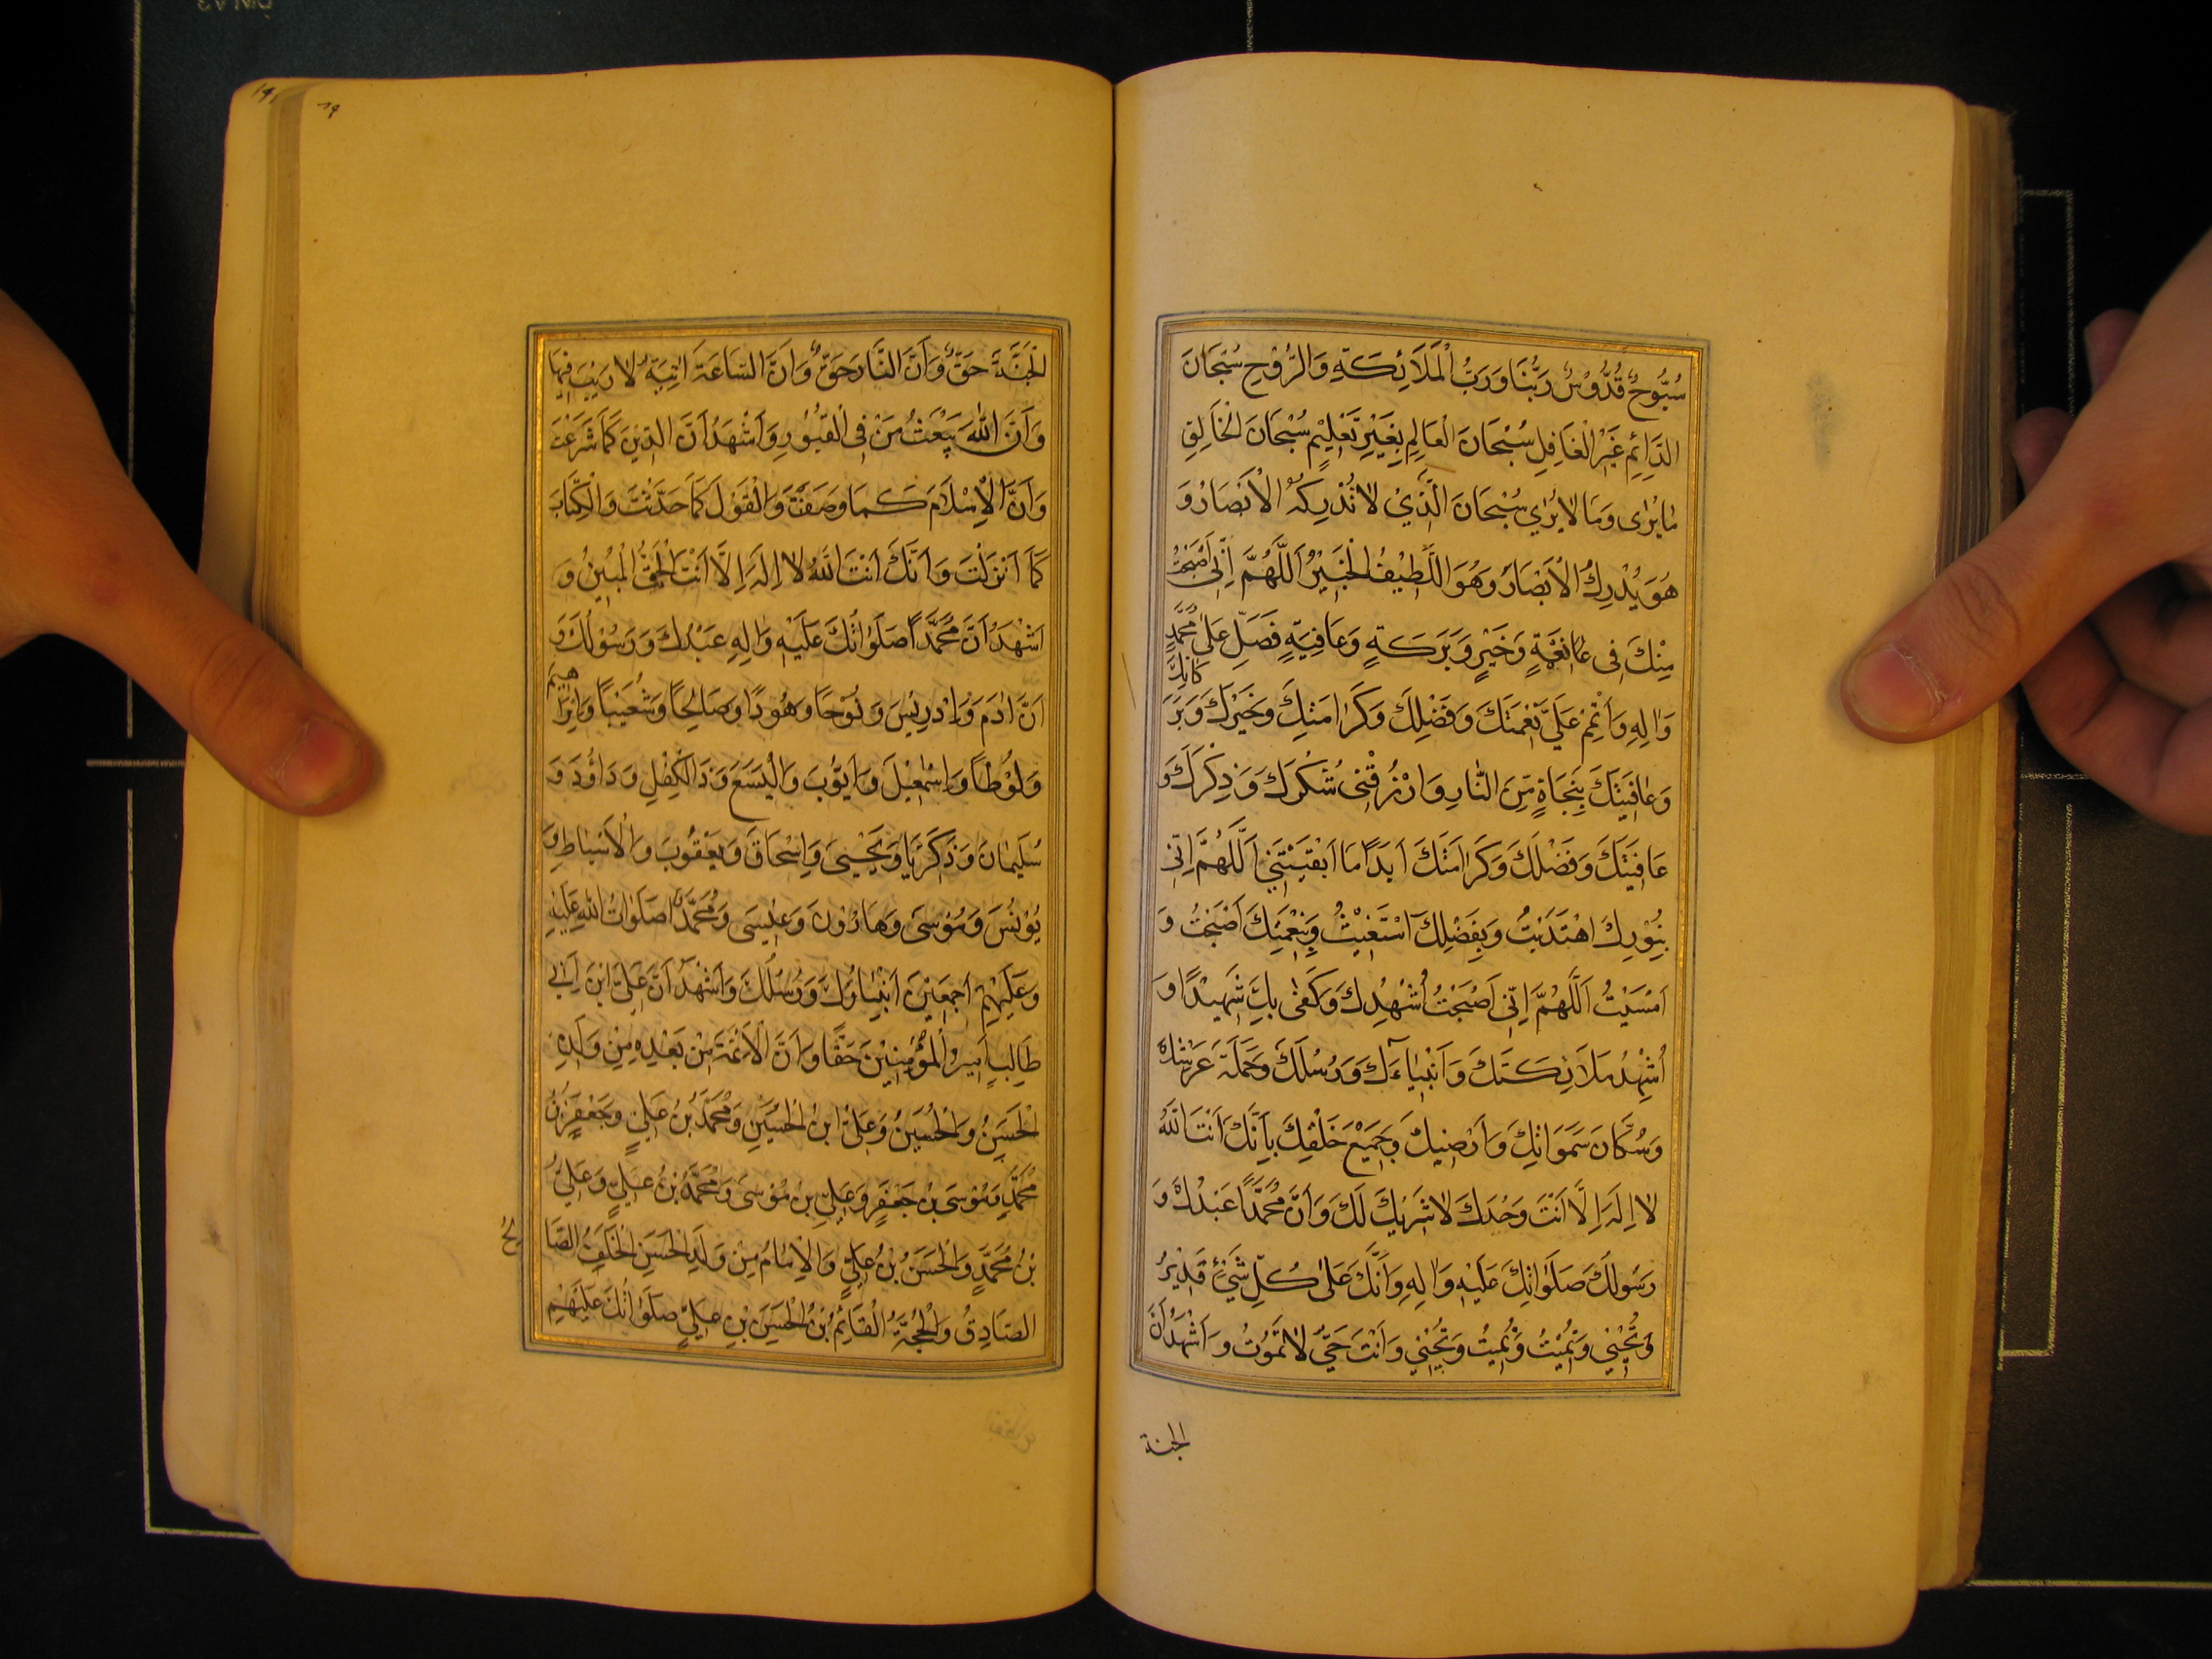 سُبُّوحٌ قُدُّوْسٌ رَبُّنَا وَرَبُّ الْمَلَائِكَةِ وَالرُّوْحِ سُبْحَانَ
الدَّائِمِ غَيْرِ الْغَافِلِ سُبْحَانَ الْعَالِمِ بِغَيْرِ تَعْلِيْمٍ سُبْحَانَ الْخَالِقِ
مَا يُرٰى وَمَا لَا يُرٰي سُبْحَانَ الَّذِيْ لَا تُدْرِكُهُ الْاَبْصَارُ وَ
هُوَ يُدْرِكُ الْاَبْصَارَ وَهُوَ اللَّطِيْفُ الْخَبِيْرُ اَللّٰهُمَّ اِنِّى اَصْبَحْتُ
مِنْكَ فِى نِعْمَةٍ وَخَيْرٍ وَبَرَكَةٍ وَعَافِيَةٍ فَصَلِّ عَلٰى مُحَمَّدٍ
وَاٰلِهِ وَاَتْمِمْ عَلَيَّ نِعْمَتَكَ وَفَضْلِكَ وَكَرَامَتِكَ وَخَيْرَكَ وَبَرَ كَاتِكَ
وَعَافِيَتَكَ بِنَجَاةٍ مِّنَ النَّارِ وَارْزُقْنِى شُكْرَكَ وَذِكْرَكَ وَ
عَافِيَتَكَ وَفَضْلَكَ وَكَرَامَتَكَ اَبَدًا مَا اَبْقَيْتَنِى اَللّٰهُمَّ اِنِّى
بِنُوْرِكَ اهْتَدَيْتُ وَبِفَضْلِكَ اسْتَغْنَيْتُ وَبِنِعْمَتِكَ اَصْبَحْتُ وَ
اَمْسَيْتُ اَللّٰهُمَّ اِنِّى اَصْبَحْتُ اُشْهِدُكَ وَكَفٰى بِكَ شَهِيْدًا وَ
اُشْهِدُ مَلَائِكَتَكَ وَاَنْبِيَاءَكَ وَرُسُلَكَ وَحَمَلَةَ عَرْشِكَ
وَسُكَّانَ سَمَوَاتِكَ وَاَرْضِيكَ وَجَمِيْعَ خَلْقِكَ بِاَنَّكَ اَنْتَ اللّٰهُ
لَا اِلٰهَ اِلَّا اَنْتَ وَحْدَكَ لَا شَرِيْكَ لَكَ وَاَنَّ مُحَمَّدًا عَبْدُكَ وَ
رَسُولُكَ صَلَوَاتُكَ عَلَيْهِ وَاٰلِهِ وَاَنَّكَ عَلٰى كُلِّ شَيْءٍ قَدِيْرٌ
وَتُحْيِي وَتُمِيْتُ وَتُمِيْتُ وَتُحْيِي وَاَنْتَ حَيٌّ لَا تَمُوْتُ وَاَشْهَدُ اَنَّ
الجنة
الْجَنَّةَ حَقٌّ وَاَنَّ النَّارَ حَقٌّ وَاَنَّ السَّاعَةَ اٰتِيَةٌ لَا رَيْبَ فِيْهَا
وَاَنَّ اللّٰهَ يَبْعَثُ مَنْ فِى الْقُبُوْرِ وَاَشْهَدُ اَنَّ الدِّيْنَ كَمَا شَرَعْتَ
وَاَنَّ الْاِسْلَامَ كَمَا وَصَفْتَ وَالْقَوْلَ كَمَا حَدَّثْتَ وَالْكِتَابَ
كَمَا اَنْزَلْتَ وَاَنَّكَ اَنْتَ اللّٰهُ لَا اِلٰهَ اِلَّا اَنْتَ الْحَقُّ الْمُبِيْنُ وَ
اَشْهَدُ اَنَّ مُحَمَّدًا صَلَوَاتُكَ عَلَيْهِ وَاٰلِهِ عَبْدُكَ وَرَسُوْلُكَ وَ
اَنَّ اٰدَمَ وَاِدْرِيْسَ وَنُوْحًا وَهُوْدًا وَصَالِحًا وَشُعَيْبًا وَاِبْرَاهِيْمَ
وَلُوْطًا وَاِسْمٰعِيْلَ وَاَيُّوْبَ وَالْيَسَعَ وَذَاالْكِفْلِ وَدَاوُدَ وَ
سُلَيْمَانَ وَزَكَرِيَّا وَيَحْيٰى وَاِسْحَاقَ وَيَعْقُوْبَ وَالْاَسْبَاطِ وَ
يُوْنُسَ وَمُوْسٰى وَهَارُوْنَ وَعِيْسٰى وَمُحَمَّدًا صَلَوَاتُ اللّٰهِ عَلَيْهِ
وَعَلَيْهِمْ اَجْمَعِيْنَ اَنْبِيَاؤُكَ وَرُسُلُكَ وَاَشْهَدُ اَنَّ عَلِىَّ ابْنَ اَبِى
طَالِبٍ اَمِيْرُ الْمُؤْمِنِيْنَ حَقًّا وَاَنَّ الْاَئِمَّةَ مِنْ بَعْدِهِ مِنْ وَلَدِهِ
الْحَسَنُ وَالْحُسَيْنُ وَعَلِىُّ ابْنُ الْحُسَيْنِ وَمُحَمَّدُ بْنُ عَلِيٍّ وَجَعْفَرُ بْنُ
مُحَمَّدٍ وَمُوْسَى بْنُ جَعْفَرٍ وَعَلِيُّ بْنُ مُوْسَى وَمُحَمَّدُ بْنُ عَلِيٍّ وَعَلِيُّ
بْنُ مُحَمَّدٍ وَالْحَسَنُ بْنُ عَلِيٍّ وَالْاِمَامُ مِنْ وَلَدِ الْحَسَنِ الْخَلَفُ الصَّا لِحُ
الصَّادِقُ وَالْحُجَّةُ الْقَائِمُ بْنُ الْحَسَنِ بْنِ عَلِيٍّ صَلَوَاتُكَ عَلَيْهِمْ